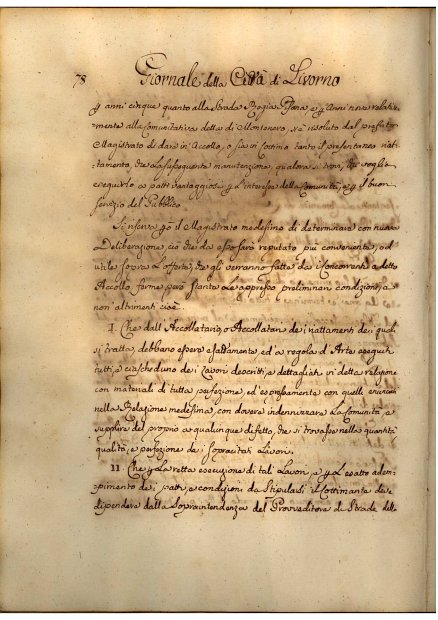 78 Giornale della Città di Livorno
p anni cinque quanto alla Strada Regia Pisana, e p Anni nove relativa-
mente alla Comunitativa detta di Montenero, è risoluto dal prefato
Magistrato di dare in Accollo, o sia in Cottimo tanto il presentaneo riat-
tamento, che la susseguente manutenzione, qualora si trovi, chi voglia
eseguirlo a patti vantaggiosi p l'interesse della Comunità, e p il buon
servizio del Pubblico
Si riserva però il Magistrato medesimo di determinare con nuova
Deliberazione ciò che da esso sarà reputato più conveniente, ed
utile sopra l'offerte, che gli verranno fatte da i Concorrenti a detto
Accollo ferme però stanti le appresso preliminari condizioni, e
non altrimenti cioè
I. Che dall'Accollatario, o Accollatari de i riattamenti dei quali
si tratta, debbano essere esattamente, ed a regola d'Arte eseguiti
tutti, e ciascheduno dei Lavori descritti, e dettagliati in detta relazione
con materiali di tutta perfezione, ed espressamente con quelli enunciati
nella Relazione medesima, con dovere indennizzare la Comunità, e
supplire del proprio a qualunque difetto, che si trovasse nella quantità,
qualità, e perfezione de i sopracitati Lavori.
II. Che p la retta esecuzione di tali Lavori, e p l'esatto adem-
pimento dei patti, e condizioni da stipularsi il Cottimante deve
dipendere dalla Soprintendenza del Provveditore di Strade delle